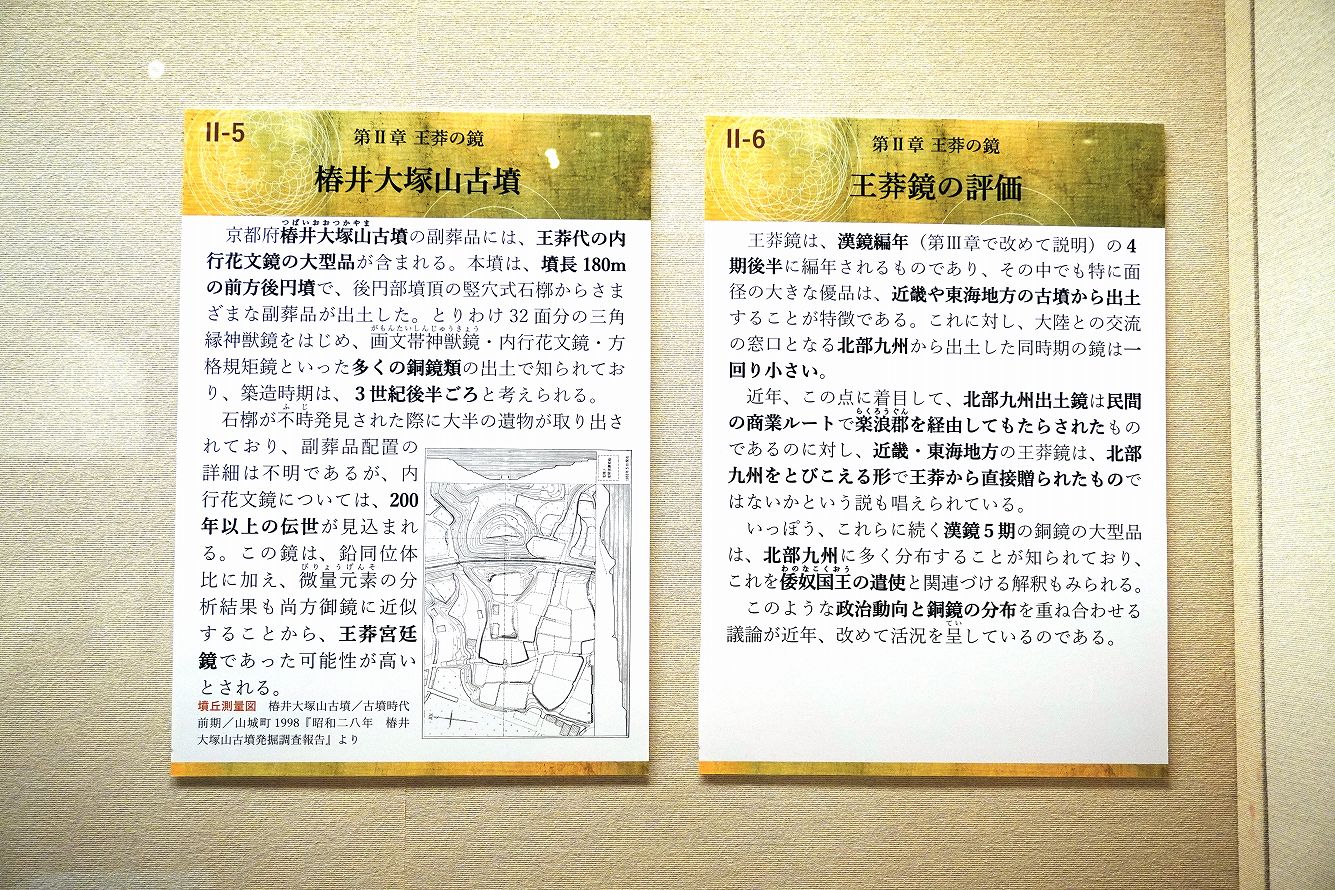 II-5
第Ⅱ章 王莽の鏡
椿井大塚山古墳
つばいおおつかやま
京都府椿井大塚山古墳の副葬品には、王莽代の内
行花文鏡の大型品が含まれる。本墳は、墳長180m
の前方後円墳で、後円部墳頂の竪穴式石槨からさま
ざまな副葬品が出土した。とりわけ32面分の三角
がもんたいしんじゅうきょう
縁神獣鏡をはじめ、画文帯神獣鏡・内行花文鏡・方
格規矩鏡といった多くの銅鏡類の出土で知られてお
り、築造時期は、3世紀後半ごろと考えられる。
ふじ
石槨が不時発見された際に大半の遺物が取り出さ
れており、副葬品配置の
詳細は不明であるが、内
行花文鏡については、200
年以上の伝世が見込まれ
る。この鏡は、鉛同位体
びりょうげんそ
比に加え、微量元素の分
析結果も尚方御鏡に近似
することから、王莽宮廷
鏡であった可能性が高い
とされる。
墳丘測量図 椿井大塚山古墳／古墳時代
前期／山城町1998『昭和二八年 椿井
大塚山古墳発掘調査報告』より
II-6
第Ⅱ章 王莽の鏡
王莽鏡の評価
王莽鏡は、漢鏡編年（第Ⅲ章で改めて説明）の4
期後半に編年されるものであり、その中でも特に面
径の大きな優品は、近畿や東海地方の古墳から出土
することが特徴である。これに対し、大陸との交流
の窓口となる北部九州から出土した同時期の鏡は一
回り小さい。
近年、この点に着目して、北部九州出土鏡は民間
らくろうぐん
の商業ルートで楽浪郡を経由してもたらされたもの
であるのに対し、近畿・東海地方の王莽鏡は、北部
九州をとびこえる形で王莽から直接贈られたもので
はないかという説も唱えられている。
いっぽう、これらに続く漢鏡5期の銅鏡の大型品
は、北部九州に多く分布することが知られており、
わのなこくおう
これを倭奴国王の遣使と関連づける解釈もみられる。
このような政治動向と銅鏡の分布を重ね合わせる
てい
議論が近年、改めて活況を呈しているのである。